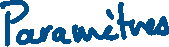 Paramètres